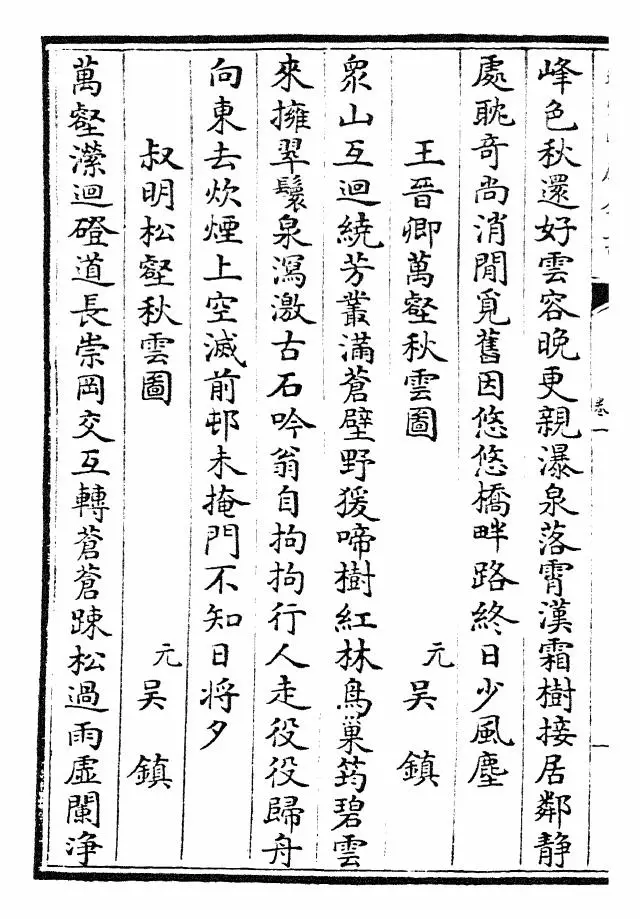 卷一
峰色秋還好雲容晚更親瀑泉落霄漢霜樹接居鄰靜
處耽奇尚消閒覓舊因悠悠橋畔路終日少風塵
王晉卿萬壑秋雲圖 元 吳 鎮
眾山互迴繞芳叢滿蒼壁野猨啼樹紅林鳥巢筠碧雲
來擁翠鬟泉瀉激古石吟翁自拘拘行人走役役歸舟
向東去炊煙上空滅前邨未掩門不知日將夕
叔明松壑秋雲圖 元 吳 鎮
萬壑瀠迴磴道長崇岡交互轉蒼蒼踈松過雨虛闌淨